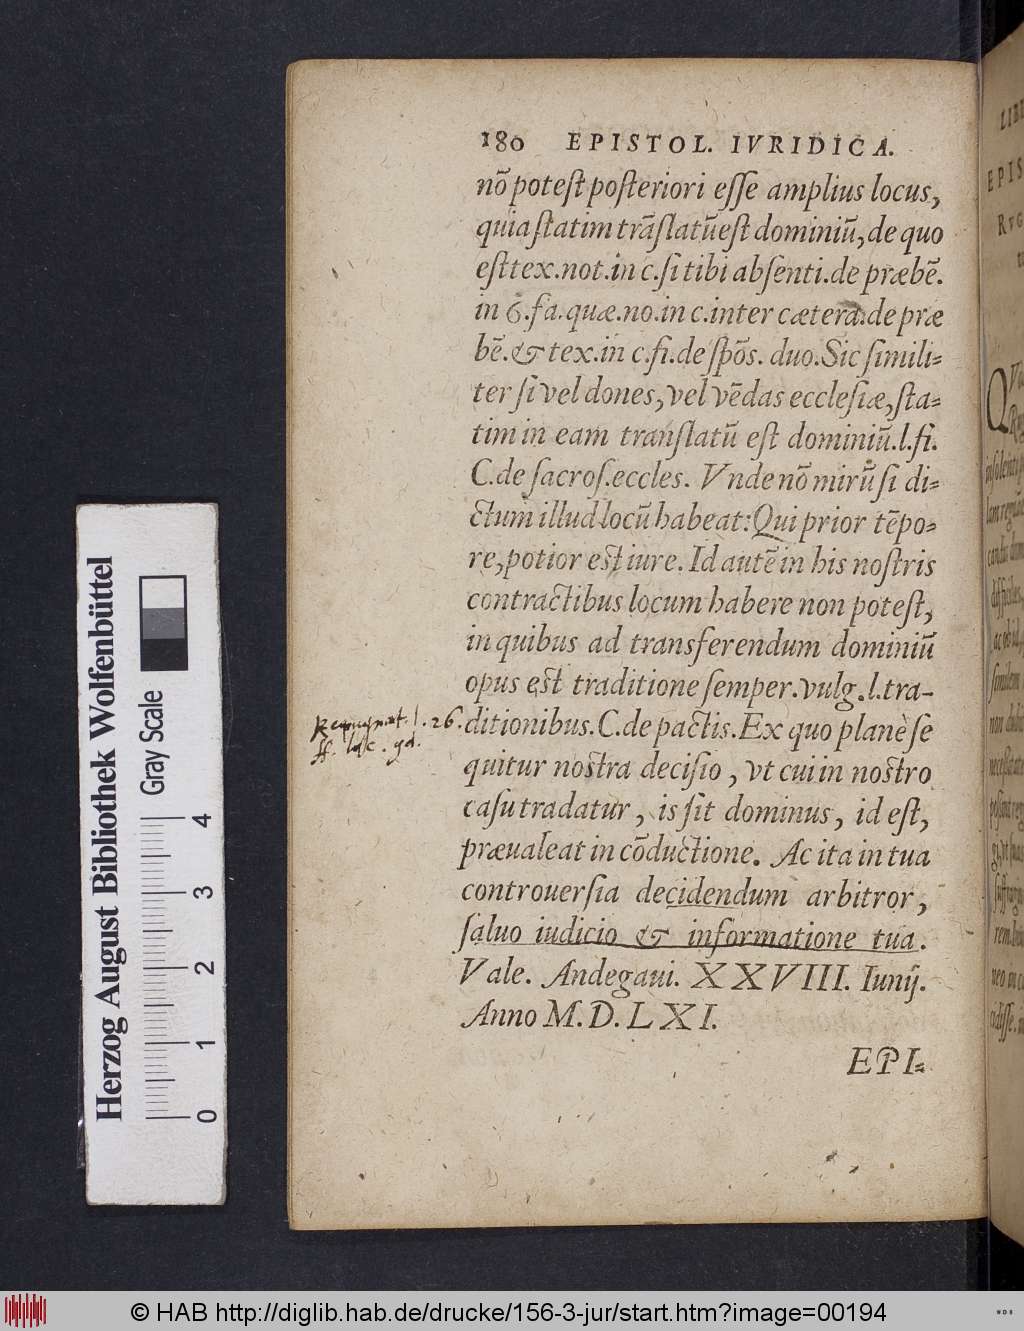 180 EPISTOL. IVRIDICA.
nō poteſt poſteriori eſſe amplius locus,
quia ſtatim trāſlatū eſt dominiū, de quo
eſt tex. not. in c. ſi tibi abſenti. de præbē.
in 6. fa. quæ. no. in c. inter cætera. de præ
bē. & tex. in c. fi. de ſpōs. duo. Sic ſimili⸗
ter ſi vel dones, vel vēdas eccleſiæ, ſta⸗
tim in eam tranſlatū eſt dominiū. l. fi.
C. de ſacroſ. eccles. Vnde nō mirū ſi di⸗
ctum illud locū habeat: Qui prior tēpo⸗
re, potior est iure. Id autē in his noſtris
contractibus locum habere non poteſt,
in quibus ad transferendum dominiū
opus est traditione ſemper. vulg. l. tra-
ditionibus. C. de pactis. Ex quo planè ſe
quitur nostra deciſio, vt cui in nostro
caſu tradatur, is ſit dominus, id eſt,
præualeat in cōductione. Ac ita in tua
controuerſia decidendum arbitror,
ſaluo iudicio & informatione tua.
Vale. Andegaui. XXVIII. Iunij.
Anno M.D.LXI.
EPI⸗
l. 26.
ff.
LIBE
EPIS
Herzog August Bibliothek Wolfenbüttel
Gray Scale
0 1 2 3 4
© HAB http://diglib.hab.de/drucke/156-3-jur/start.htm?image=00194